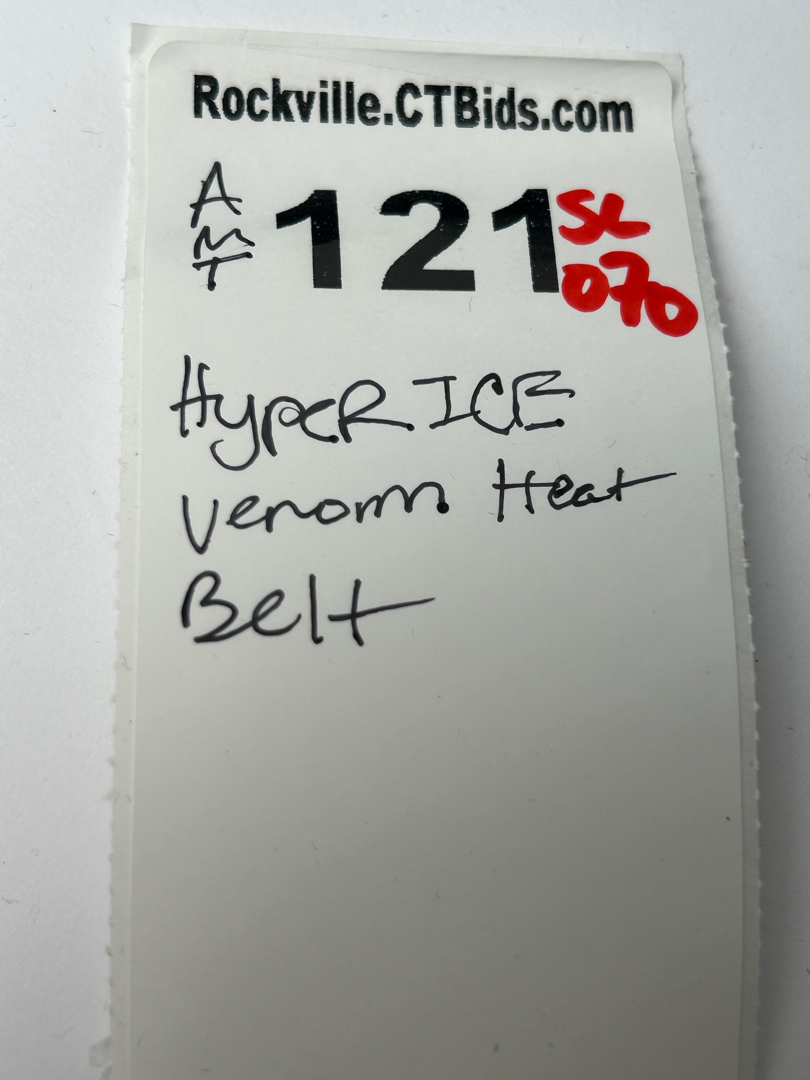 Rockville.CTBids.com
AMT 121 SL
070
HyperICE
Venom Heat
Belt